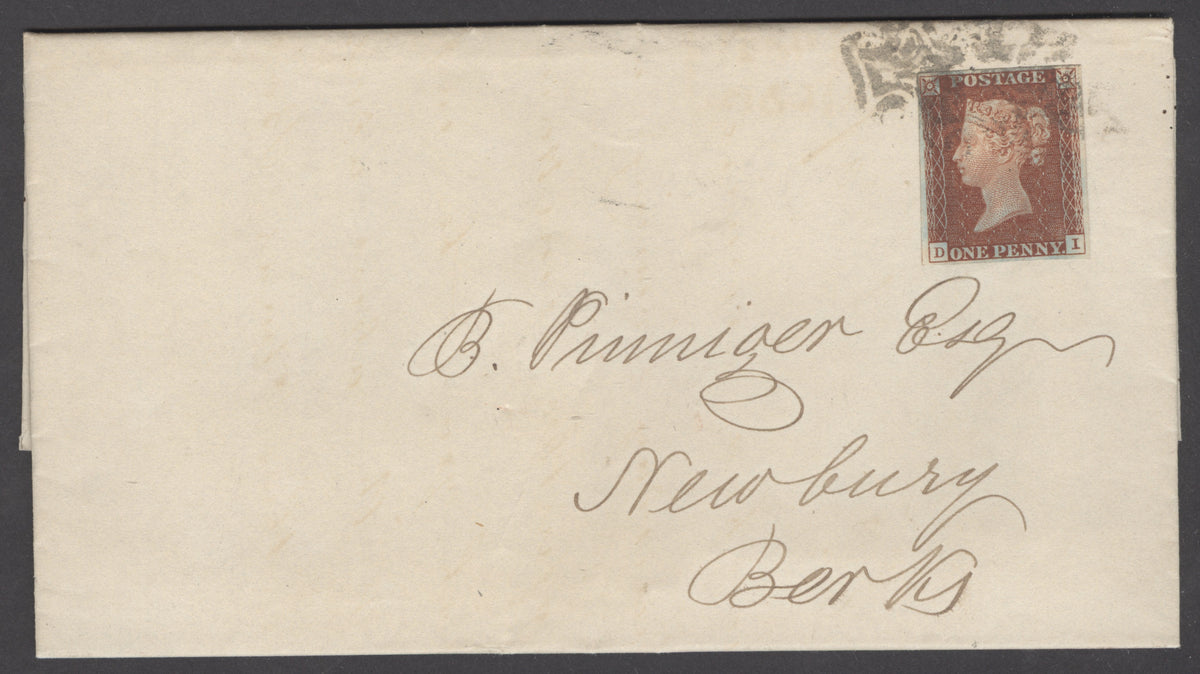 POSTAGE
D ONE PENNY. I
B. Pinniger Esq
Newbury
Berks